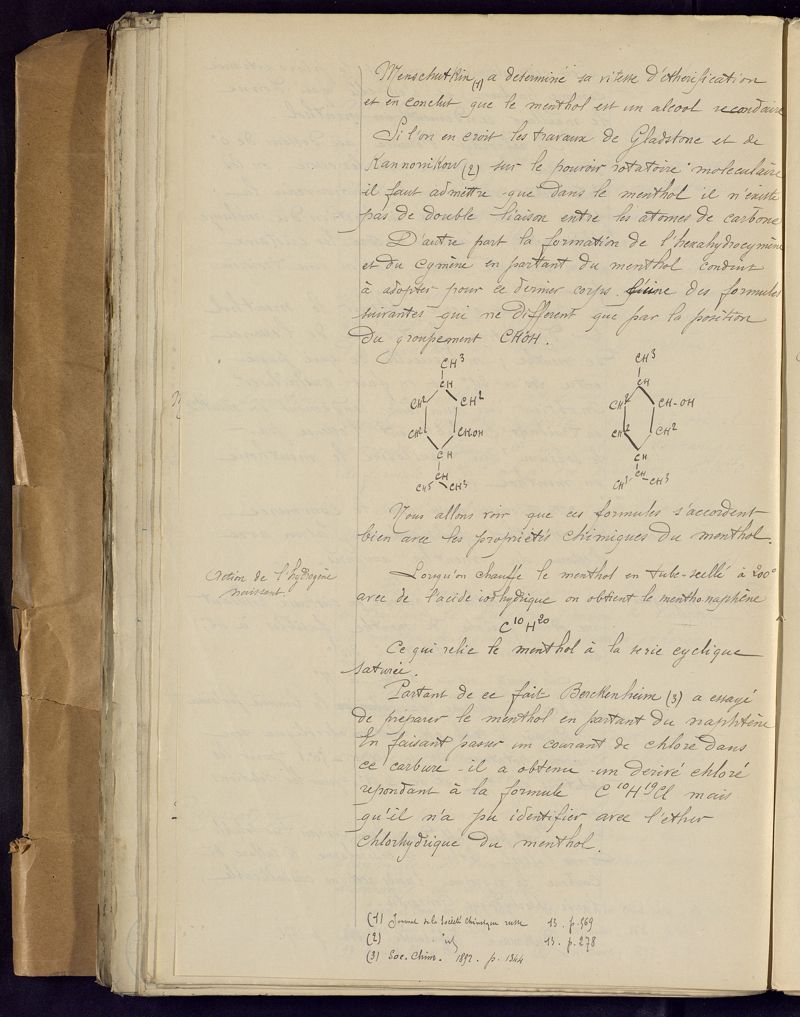 Menschutkin (1) a determiné sa vitesse d'éthérification
et en conclut que le menthol est un alcool secondaire
Si l'on en croit les travaux de Gladstone et de
Kannonikow (2) sur le pouvoir rotatoire moleculaire
il faut admettre que dans le menthol il n'existe
pas de double liaison entre les atomes de carbone
D'autre part la formation de l'hexahydrocymène
et du cymène en partant du menthol conduit
à adopter pour ce dernier corps des formules
suivantes qui ne different que par la position
du groupement CHOH.
CH3 CH3
CH CH
CH2 CH2 CH2 CH-OH
CH2 CHOH CH2 CH2
CH CH
CH CH
CH3 CH3 CH3 CH3
Nous allons voir que ces formules s'accordent
bien avec les propriétés chimiques du menthol.
Action de l'hydrogène
naissant
Lorsqu'on chauffe le menthol en tube-scellé à 200°
avec de l'acide iodhydrique on obtient le menthonaphtène
C10H20
Ce qui relie le menthol à la serie cyclique
saturée.
Partant de ce fait Berckenheim (3) a essayé
de préparer le menthol en partant du naphtène
En faisant passer un courant de chlore dans
ce carbure il a obtenu un derivé chloré
repondant à la formule C10H19Cl mais
qu'il n'a pu identifier avec l'ether
chlorhydrique du menthol.
(1) Journal de la Société chimique russe 13. p. 569
(2) id 15. p. 278
(3) Soc. Chim. 1892. p. 1344